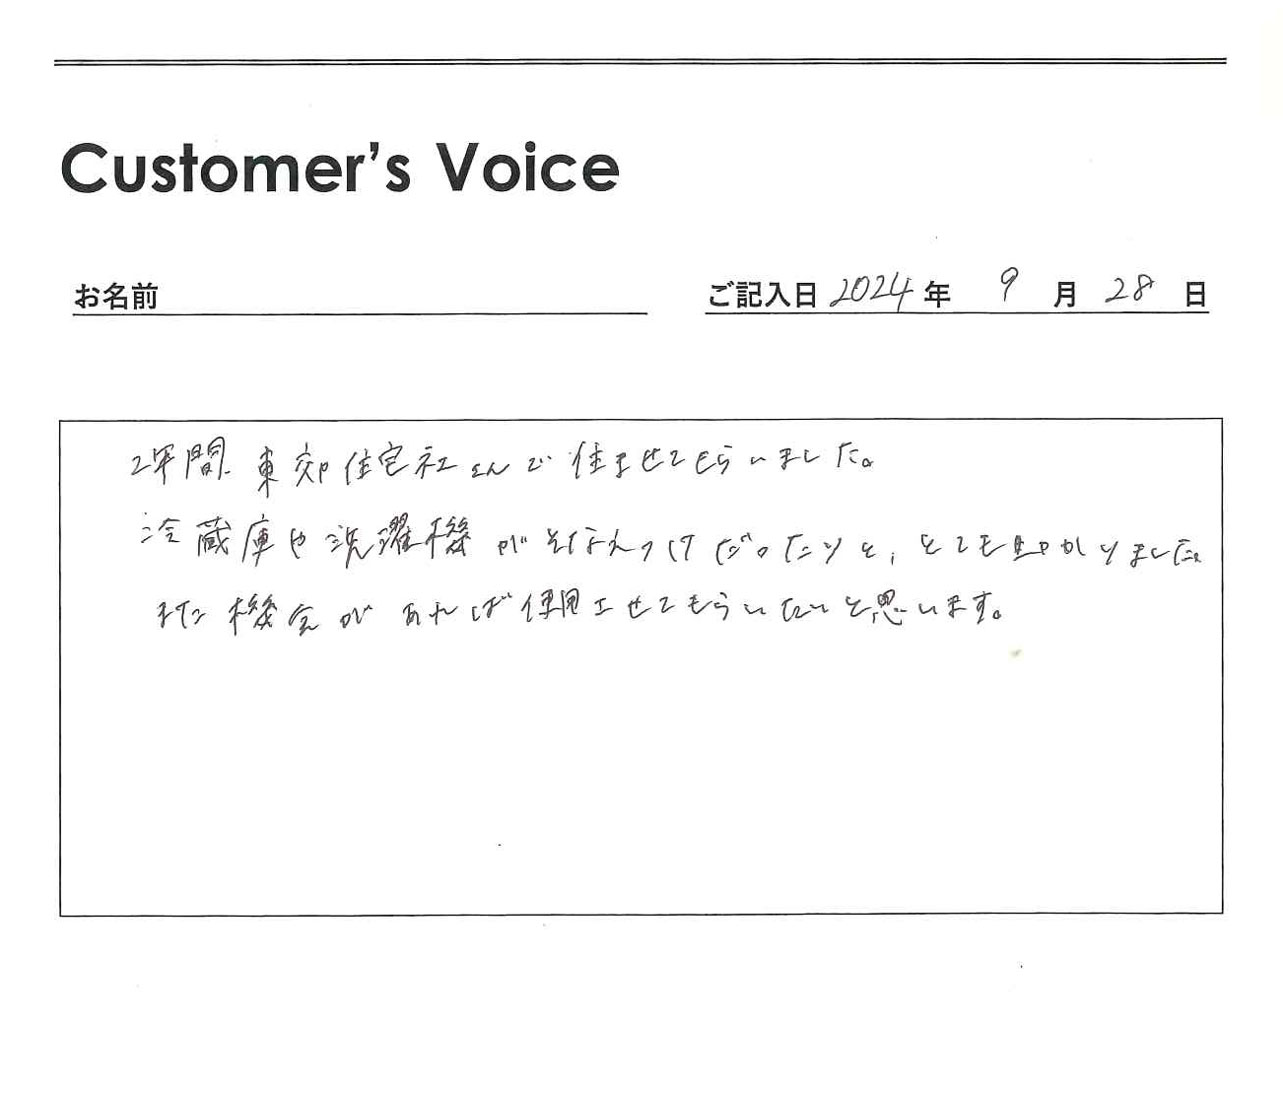 Customer's Voice
お名前
ご記入日 2024 年 9 月 28 日
2年間、東郊住宅社さんで住ませてもらいました。
冷蔵庫や洗濯機がそなえつけだったりと、とても助かりました。
また機会があれば使用させてもらいたいと思います。